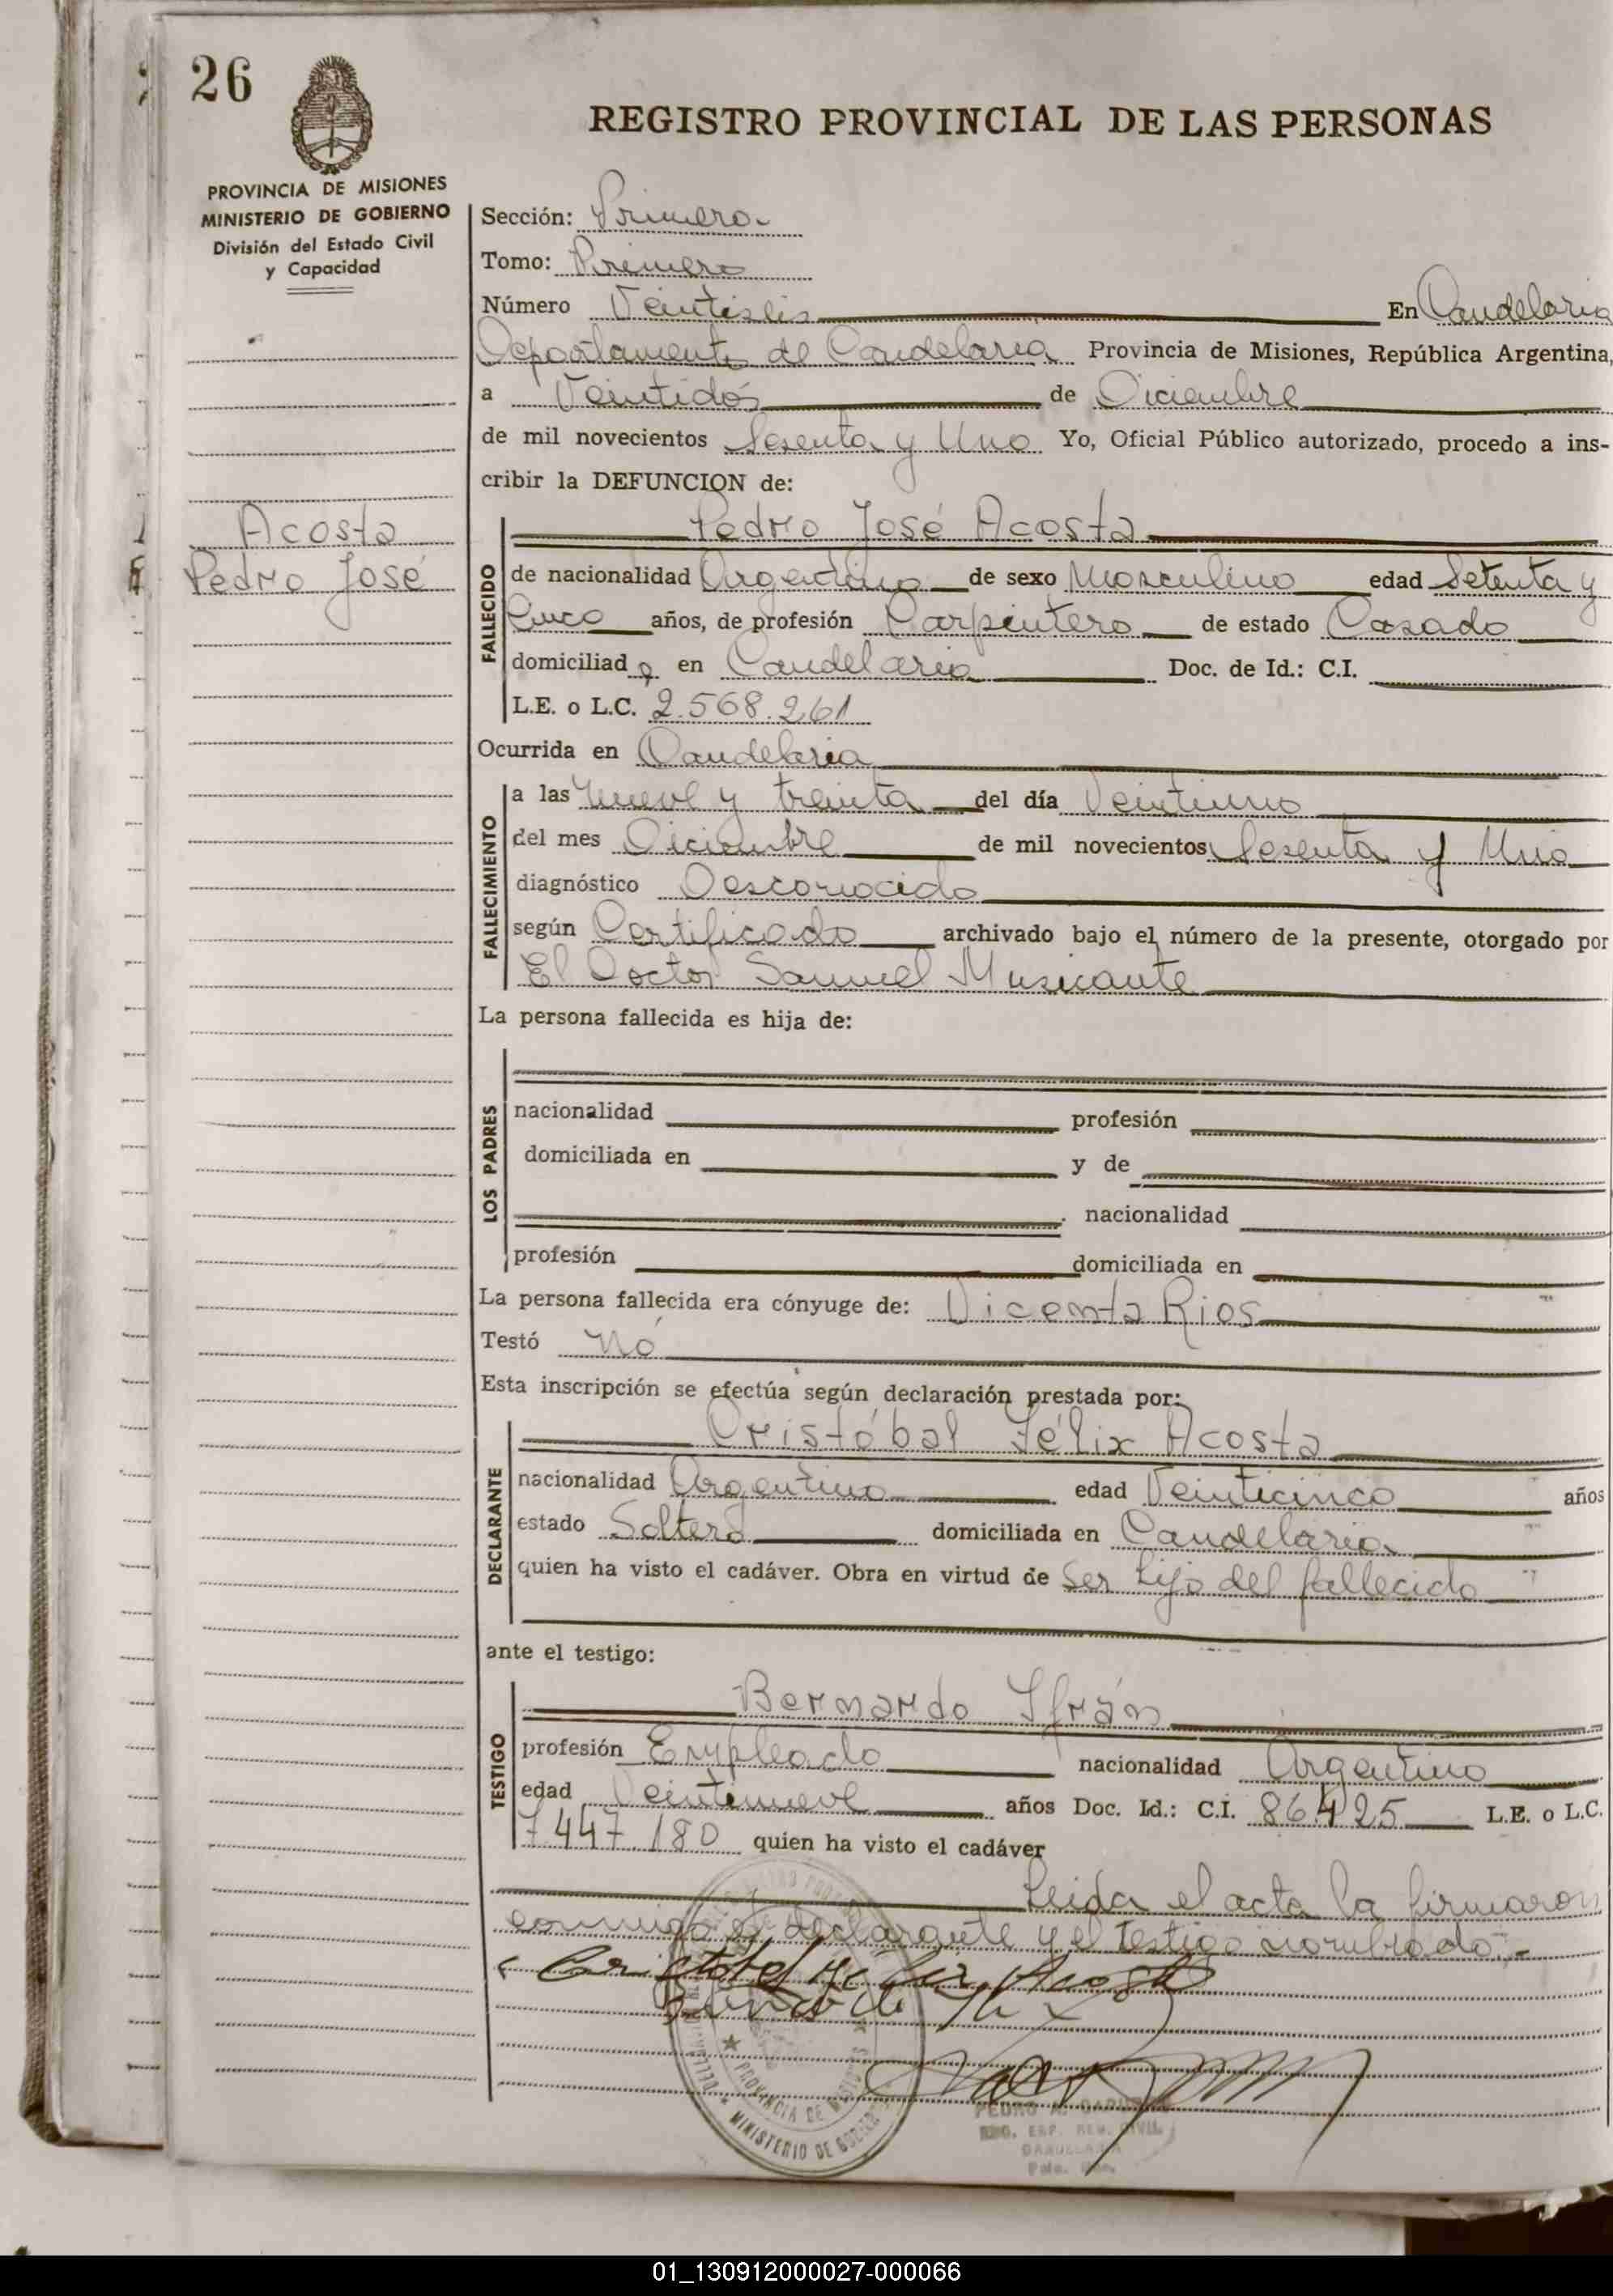 26
REGISTRO PROVINCIAL DE LAS PERSONAS
PROVINCIA DE MISIONES
MINISTERIO DE GOBIERNO
División del Estado Civil
y Capacidad
Acosta
Pedro José
Sección: Primera
Tomo: Primero
Número Veintiséis En Candelaria
Departamento de Candelaria Provincia de Misiones, República Argentina,
a Veintidós de Diciembre
de mil novecientos Sesenta y Uno Yo, Oficial Público autorizado, procedo a ins-
cribir la DEFUNCION de:
Pedro José Acosta
FALLECIDO
de nacionalidad Argentino de sexo Masculino edad Setenta y
Cinco años, de profesión Carpintero de estado Casado
domiciliado en Candelaria Doc. de Id.: C.I.
L.E. o L.C. 2.568.261
Ocurrida en Candelaria
FALLECIMIENTO
a las nueve y treinta del día Veintiuno
del mes Diciembre de mil novecientos Sesenta y Uno
diagnóstico Desconocido
según Certificado archivado bajo el número de la presente, otorgado por
El Doctor Samuel Musicante
La persona fallecida es hija de:
LOS PADRES
nacionalidad profesión
domiciliada en y de
nacionalidad
profesión domiciliada en
La persona fallecida era cónyuge de: Vicenta Rios
Testó No
Esta inscripción se efectúa según declaración prestada por:
Cristóbal Félix Acosta
DECLARANTE
nacionalidad Argentino edad Veinticinco años
estado Soltero domiciliada en Candelaria
quien ha visto el cadáver. Obra en virtud de Ser hijo del fallecido
ante el testigo:
Bernardo Ifrán
TESTIGO
profesión Empleado nacionalidad Argentino
edad Veintinueve años Doc. Id.: C.I. 86425 L.E. o L.C.
7447.180 quien ha visto el cadáver
Leida el acta la firmaron
conmigo el declarante y el testigo nombrado.-
Cristobal Félix Acosta
PROVINCIA DE
MINISTERIO DE GOBIERNO
PEDRO
CANDELARIA
01_130912000027-000066